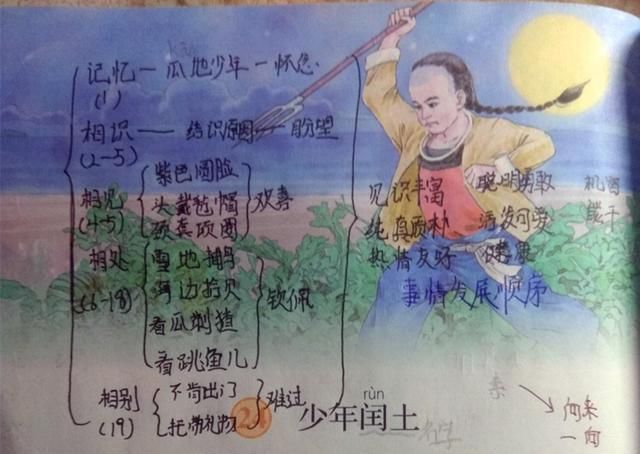 记忆一瓜地少年一怀念
(1)
相识——结识原因——盼望
(2-5)
相见
(4-5)
紫色圆脸
头戴毡帽
颈套项圈
欢喜
相处
(6-18)
雪地捕鸟
海边拾贝
看瓜刺猹
看跳鱼儿
钦佩
相别
(19)
不肯出门
托带礼物
难过
见识丰富 聪明勇敢 机智
纯真质朴 活泼可爱 能干
热情友好 健康
事情发展顺序
rùn
少年闰土
向来
一向